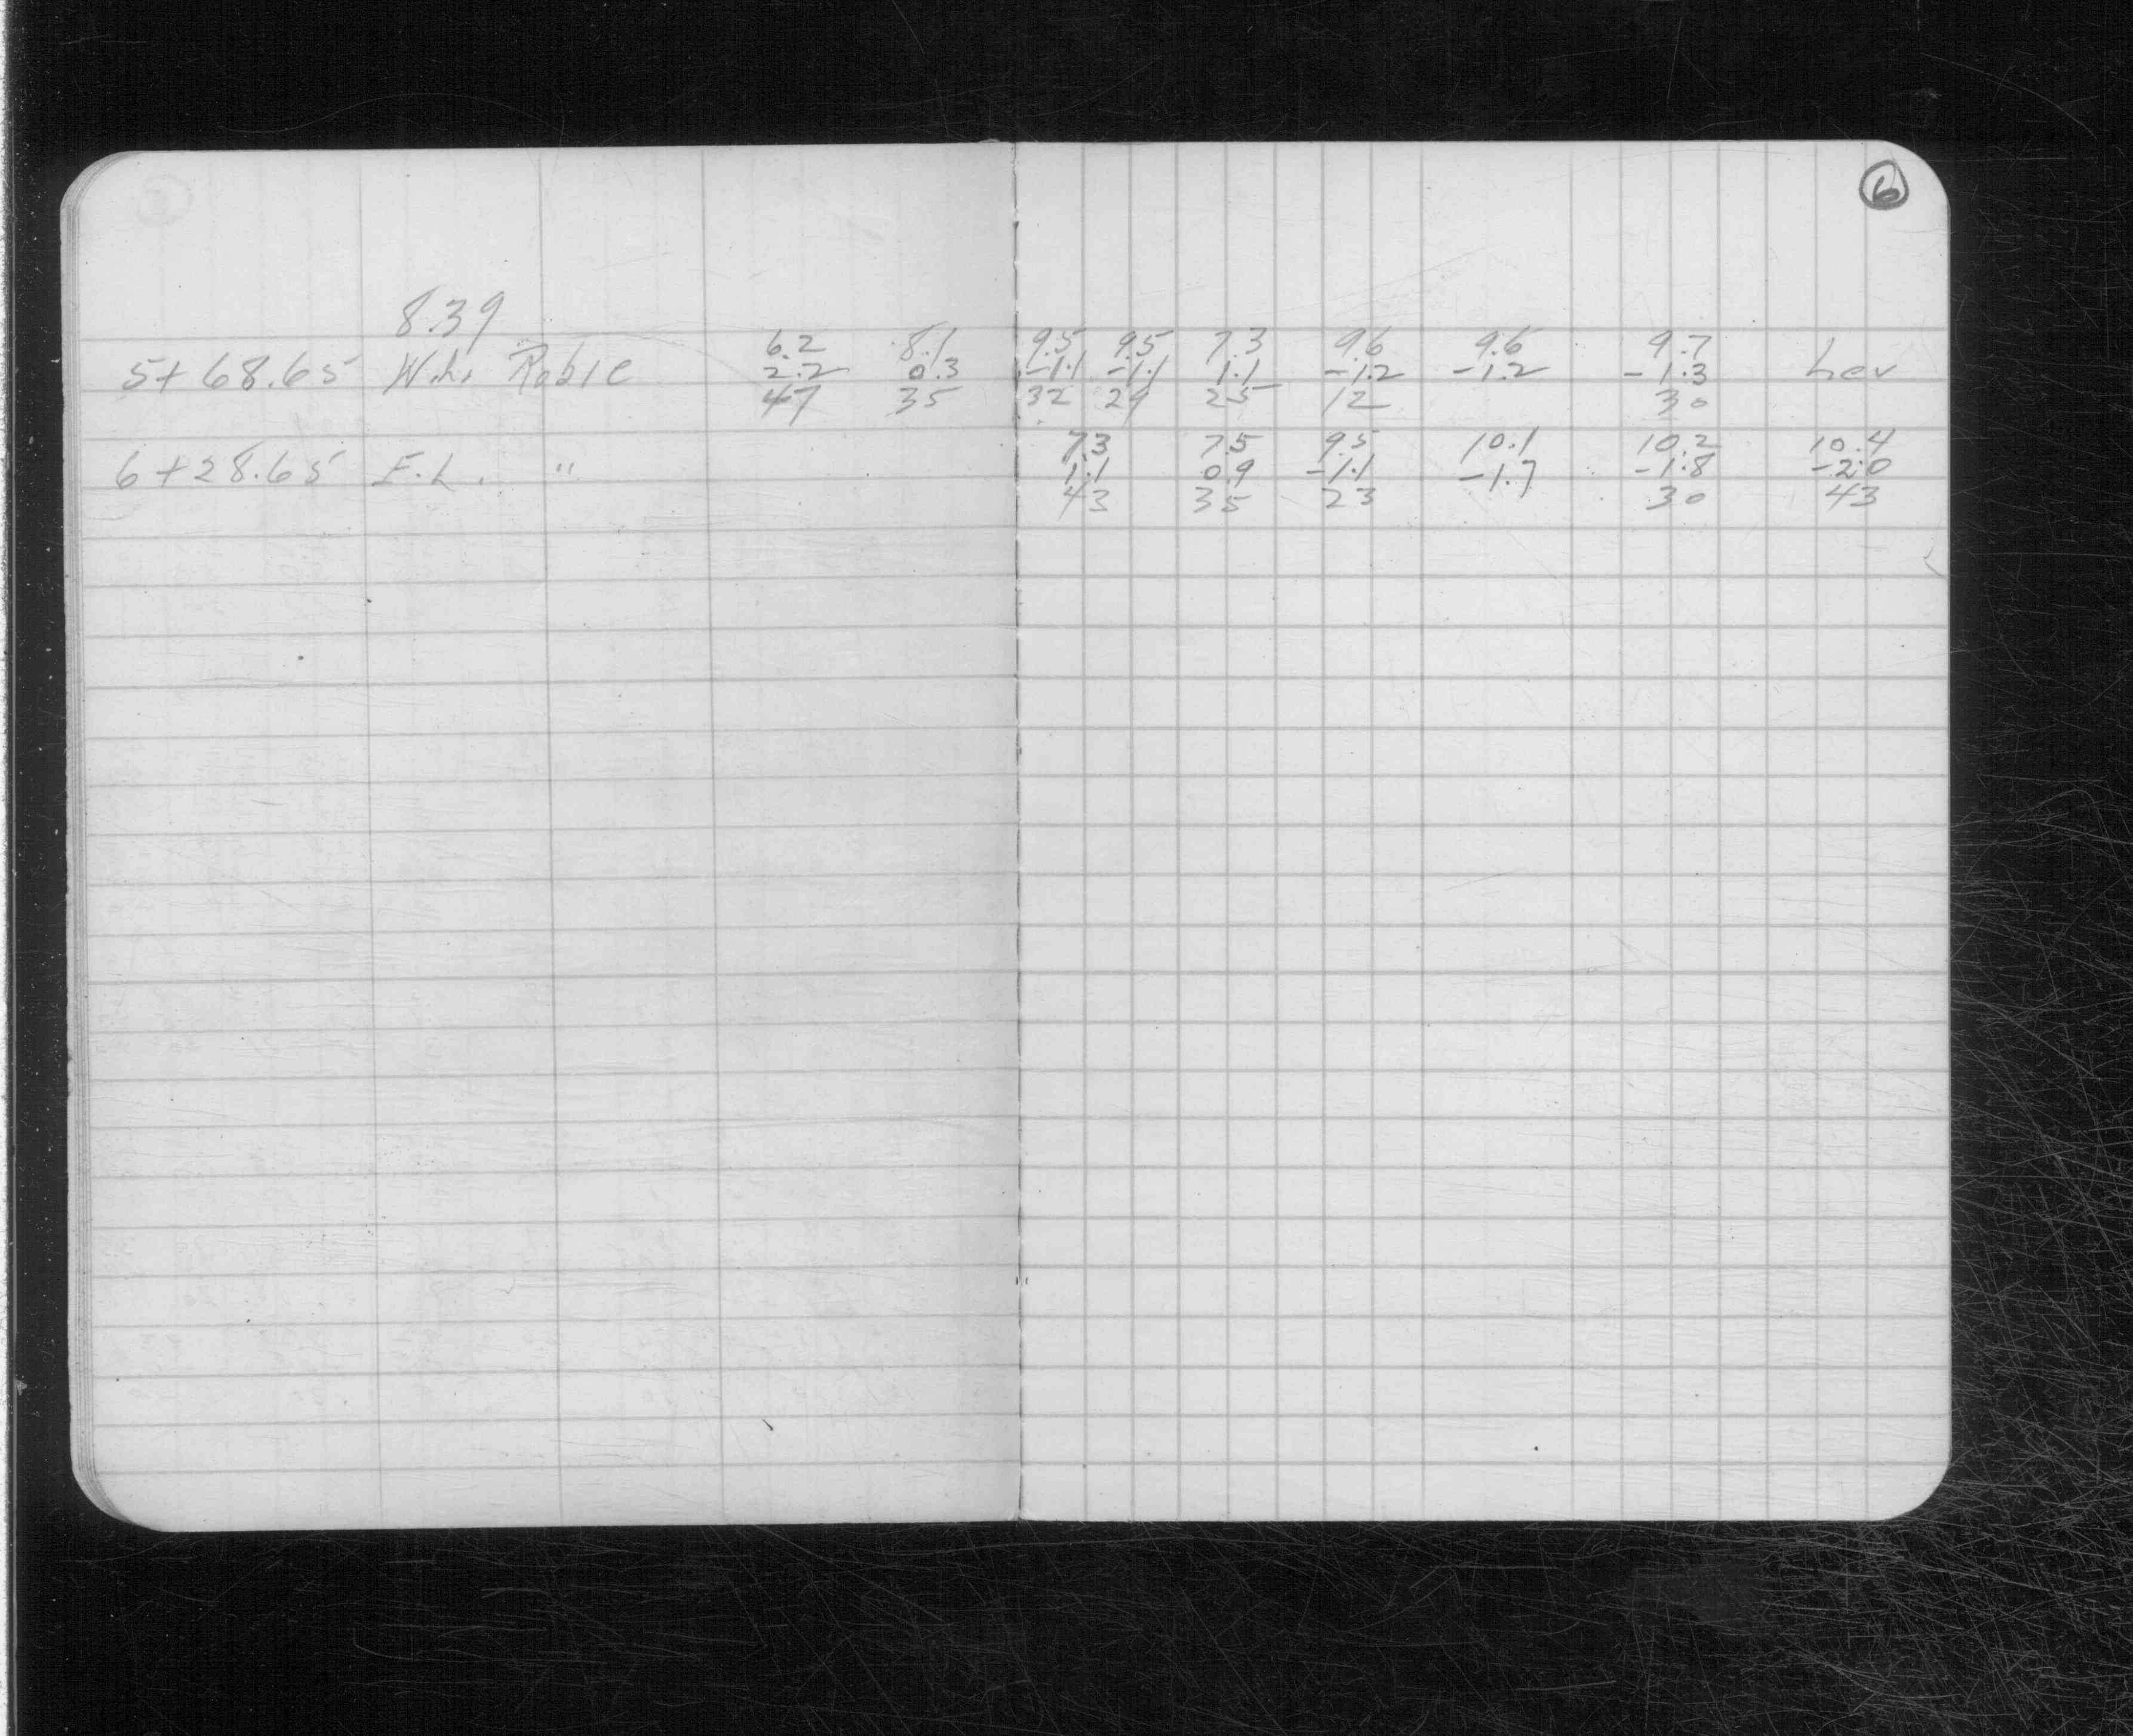 6
8.39
6.2 8.1 9.5 9.5 7.3 9.6 9.6 9.7
5+68.65 W.L. Roble 2.2 0.3 -1.1 -1.1 1.1 -1.2 -1.2 -1.3 Lev
47 35 32 29 25 12 30
7.3 7.5 9.5 10.1 10.2 10.4
6+28.65 E.L. " 1.1 0.9 -1.1 -1.7 -1.8 -2.0
43 35 23 30 43